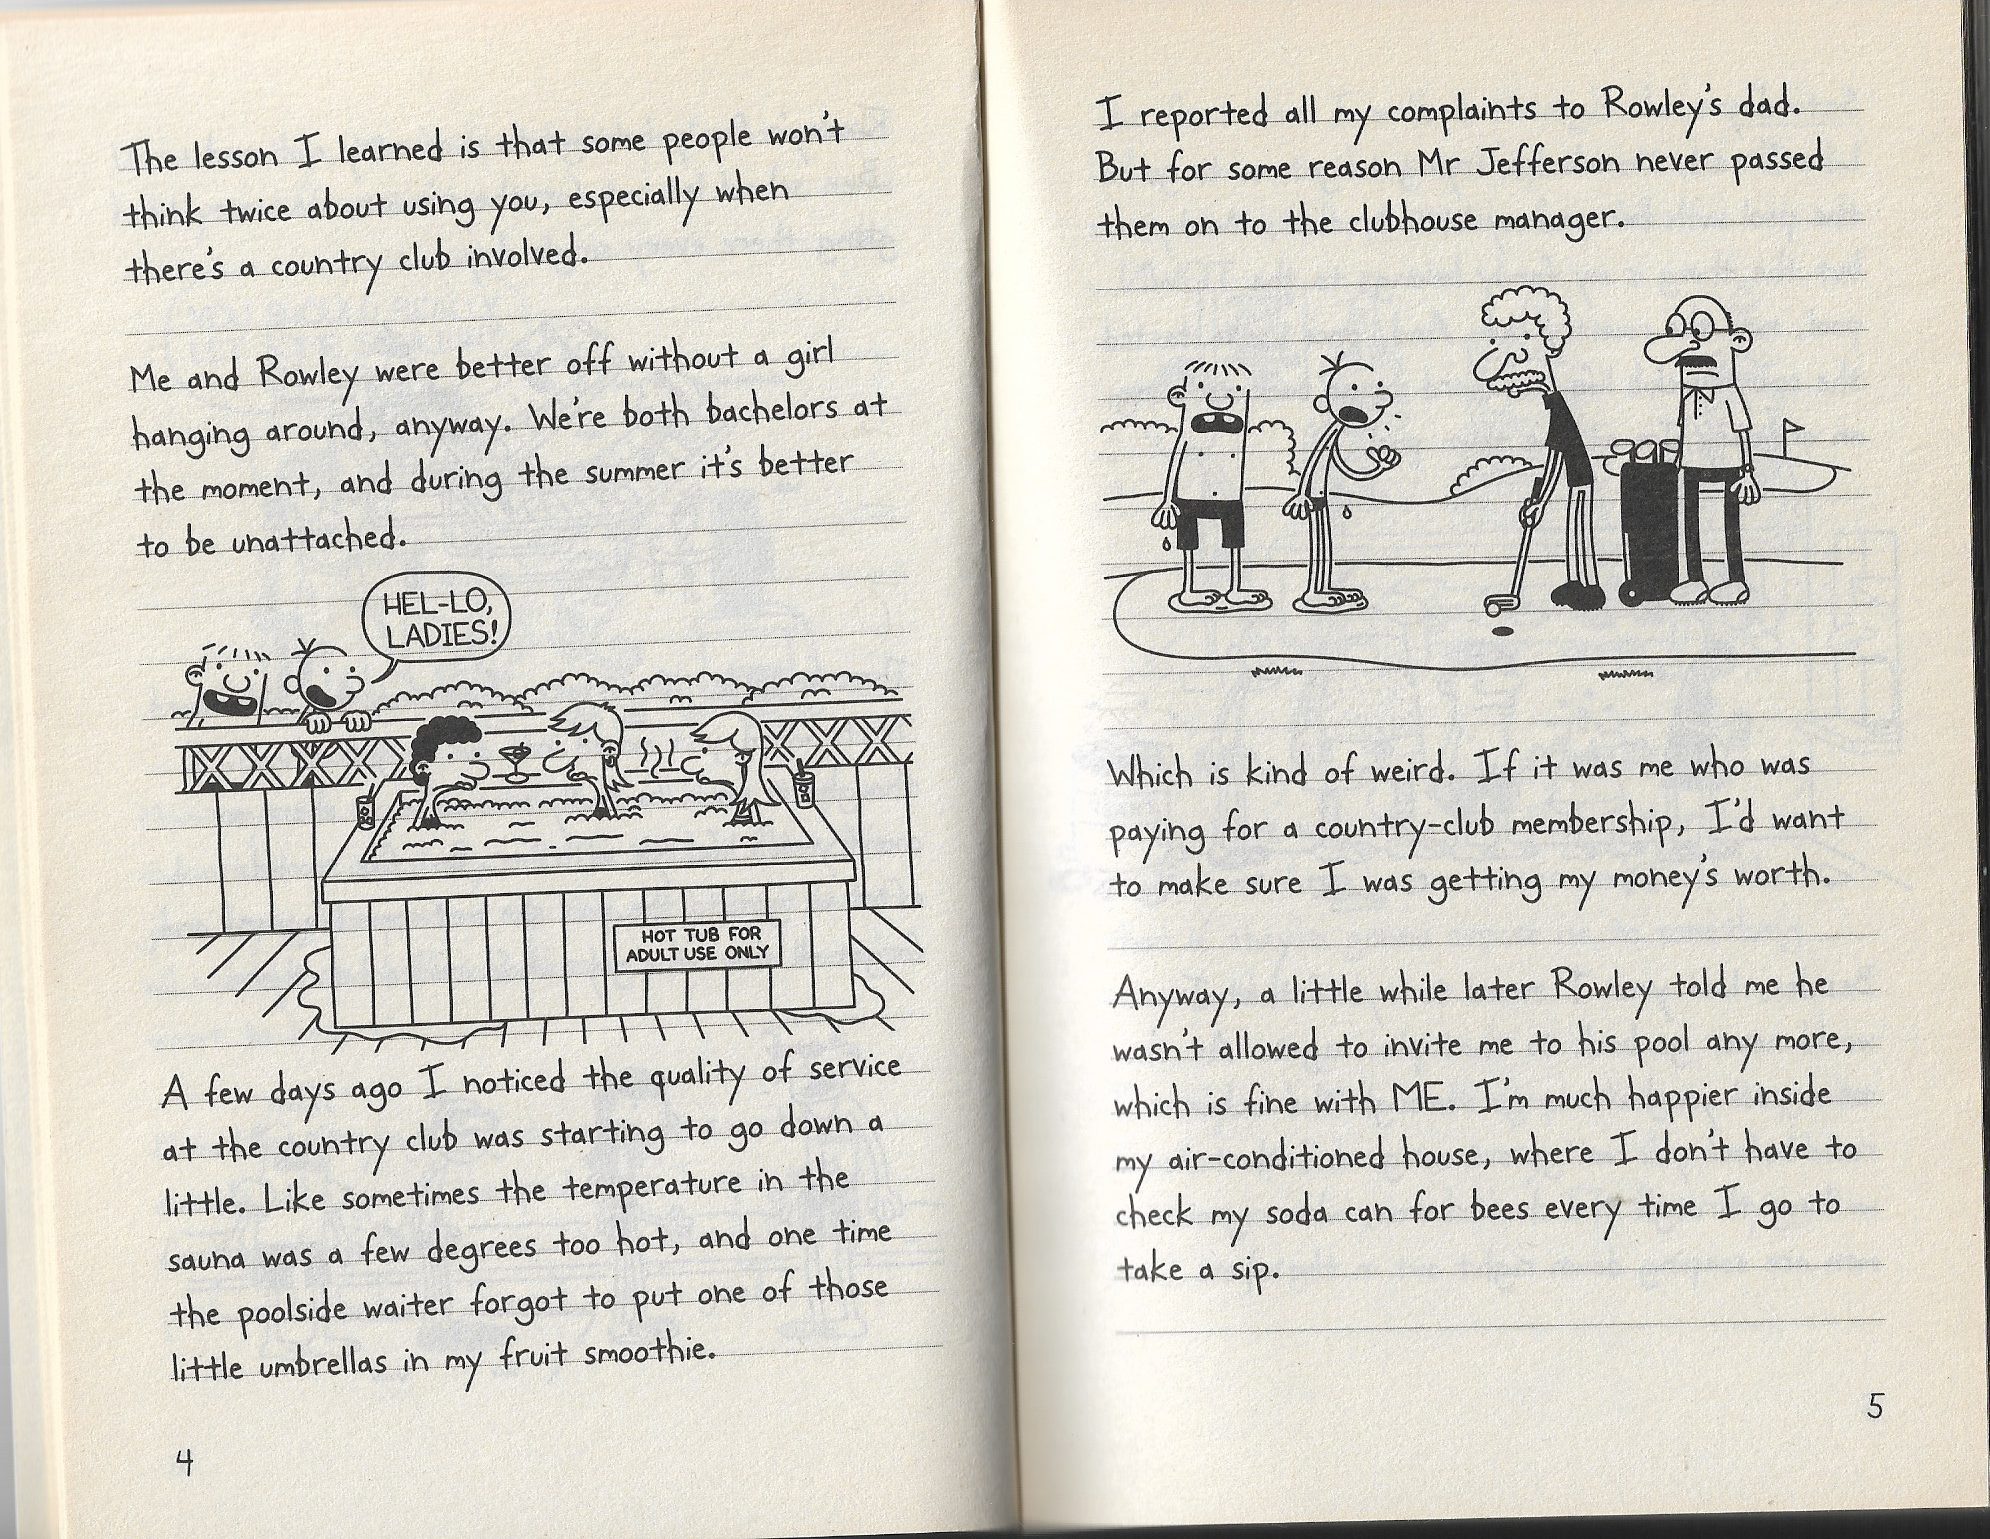 The lesson I learned is that some people won't
think twice about using you, especially when
there's a country club involved.
Me and Rowley were better off without a girl
hanging around, anyway. We're both bachelors at
the moment, and during the summer it's better
to be unattached.
HEL-LO,
LADIES!
HOT TUB FOR
ADULT USE ONLY
A few days ago I noticed the quality of service
at the country club was starting to go down a
little. Like sometimes the temperature in the
sauna was a few degrees too hot, and one time
the poolside waiter forgot to put one of those
little umbrellas in my fruit smoothie.
4
I reported all my complaints to Rowley's dad.
But for some reason Mr Jefferson never passed
them on to the clubhouse manager.
Which is kind of weird. If it was me who was
paying for a country-club membership, I'd want
to make sure I was getting my money's worth.
Anyway, a little while later Rowley told me he
wasn't allowed to invite me to his pool any more,
which is fine with ME. I'm much happier inside
my air-conditioned house, where I don't have to
check my soda can for bees every time I go to
take a sip.
5